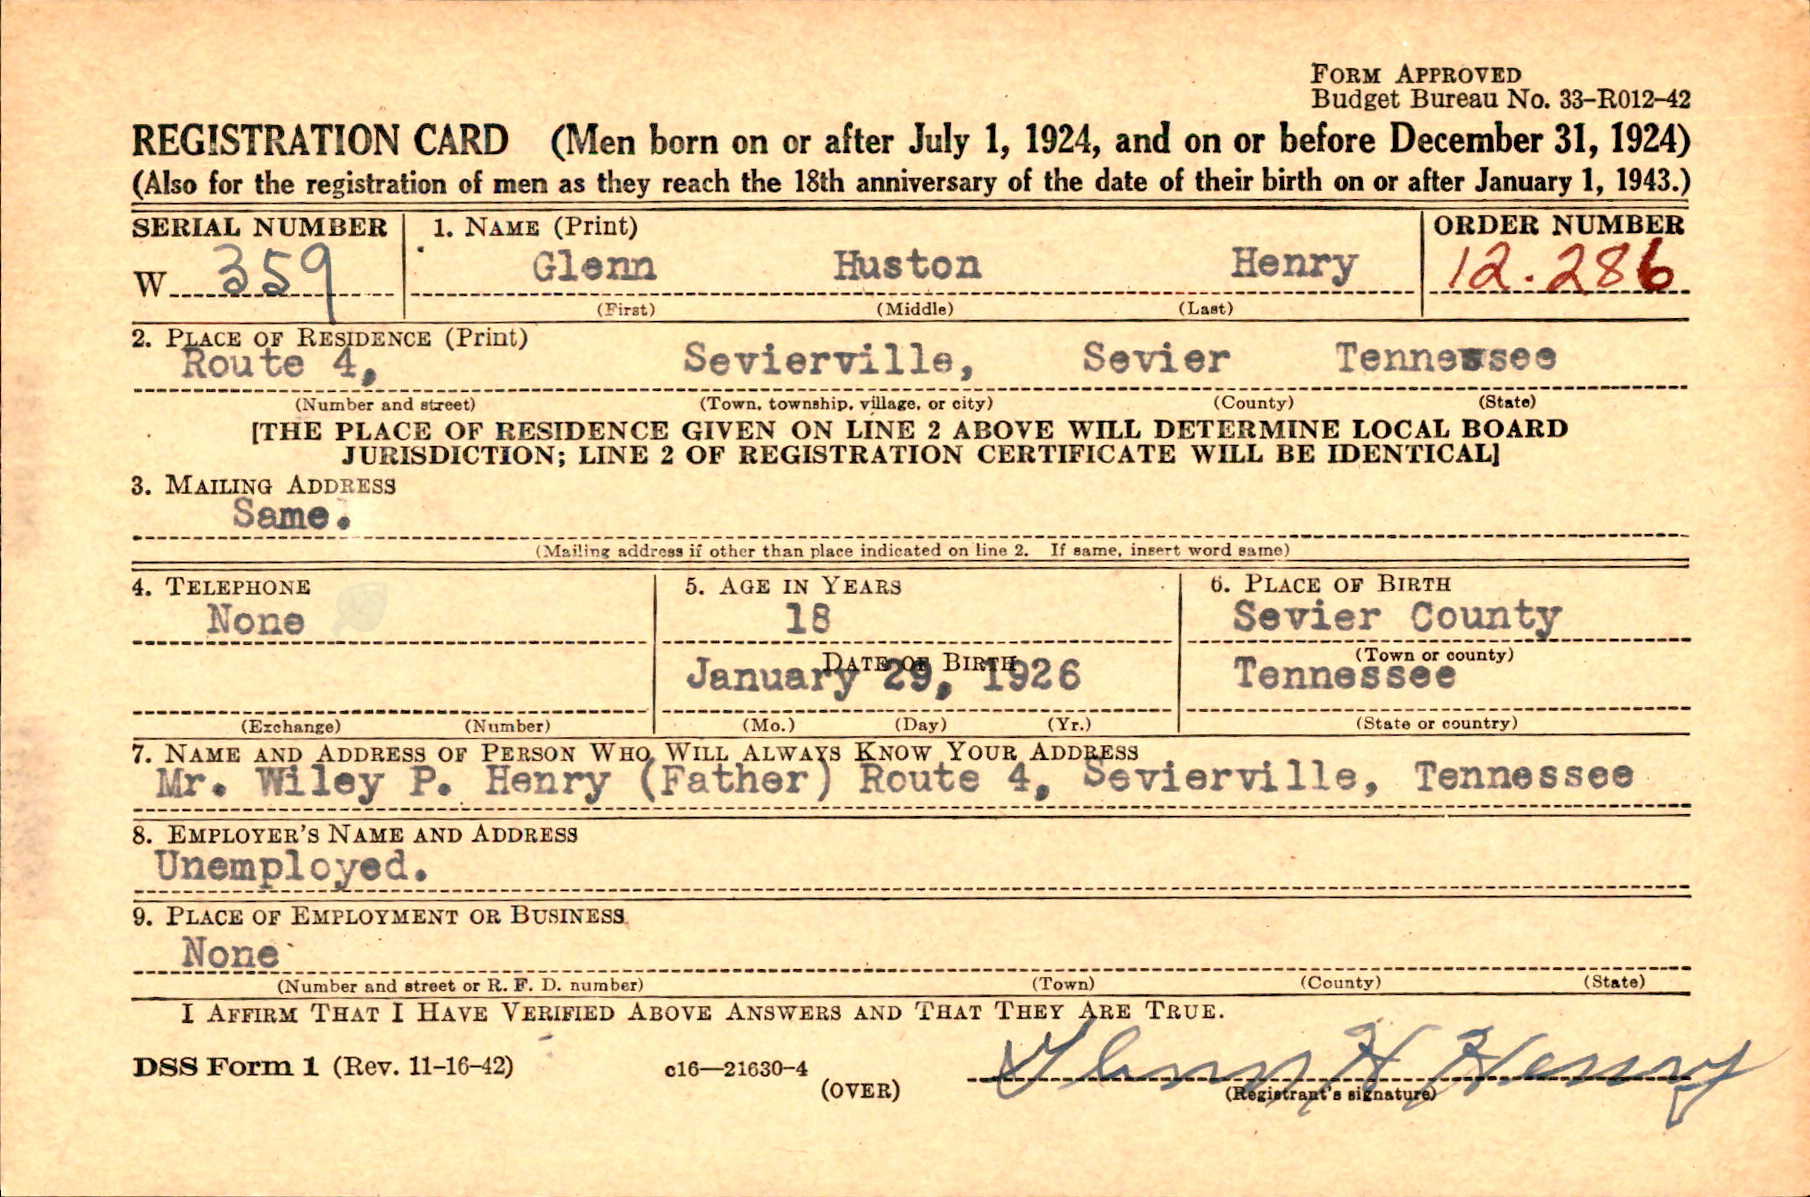 FORM APPROVED
Budget Bureau No. 33-R012-42
REGISTRATION CARD (Men born on or after July 1, 1924, and on or before December 31, 1924)
(Also for the registration of men as they reach the 18th anniversary of the date of their birth on or after January 1, 1943.)
SERIAL NUMBER 1. NAME (Print) ORDER NUMBER
W 359 Glenn Huston Henry 12.286
(First) (Middle) (Last)
2. PLACE OF RESIDENCE (Print)
Route 4, Sevierville, Sevier Tennessee
(Number and street) (Town, township, village, or city) (County) (State)
[THE PLACE OF RESIDENCE GIVEN ON LINE 2 ABOVE WILL DETERMINE LOCAL BOARD
JURISDICTION; LINE 2 OF REGISTRATION CERTIFICATE WILL BE IDENTICAL]
3. MAILING ADDRESS
Same.
(Mailing address if other than place indicated on line 2. If same, insert word same)
4. TELEPHONE 5. AGE IN YEARS 6. PLACE OF BIRTH
None 18 Sevier County
DATE OF BIRTH (Town or county)
January 29, 1926 Tennessee
(Exchange) (Number) (Mo.) (Day) (Yr.) (State or country)
7. NAME AND ADDRESS OF PERSON WHO WILL ALWAYS KNOW YOUR ADDRESS
Mr. Wiley P. Henry (Father) Route 4, Sevierville, Tennessee
8. EMPLOYER'S NAME AND ADDRESS
Unemployed.
9. PLACE OF EMPLOYMENT OR BUSINESS
None
(Number and street or R. F. D. number) (Town) (County) (State)
I AFFIRM THAT I HAVE VERIFIED ABOVE ANSWERS AND THAT THEY ARE TRUE.
DSS Form 1 (Rev. 11-16-42) c16—21630-4 Glenn H Henry
(OVER) (Registrant's signature)